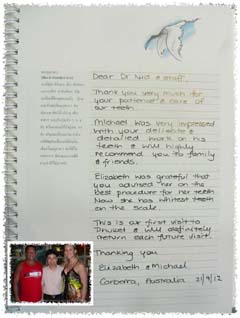 Dear Dr Nid & staff,
Thank you very much for
your patience & care of
our teeth.
Michael was very impressed
with your delicate &
detailed work on his
teeth & will highly
recommend you to family
& friends.
Elizabeth was grateful that
you advised her on the
best procedure for her teeth
Now she has whitest teeth
on the scale.
This is our first visit to
Phuket & will definitely
return each future visit.
Thanking you
Elizabeth & Michael
Canberra, Australia 21/9/12